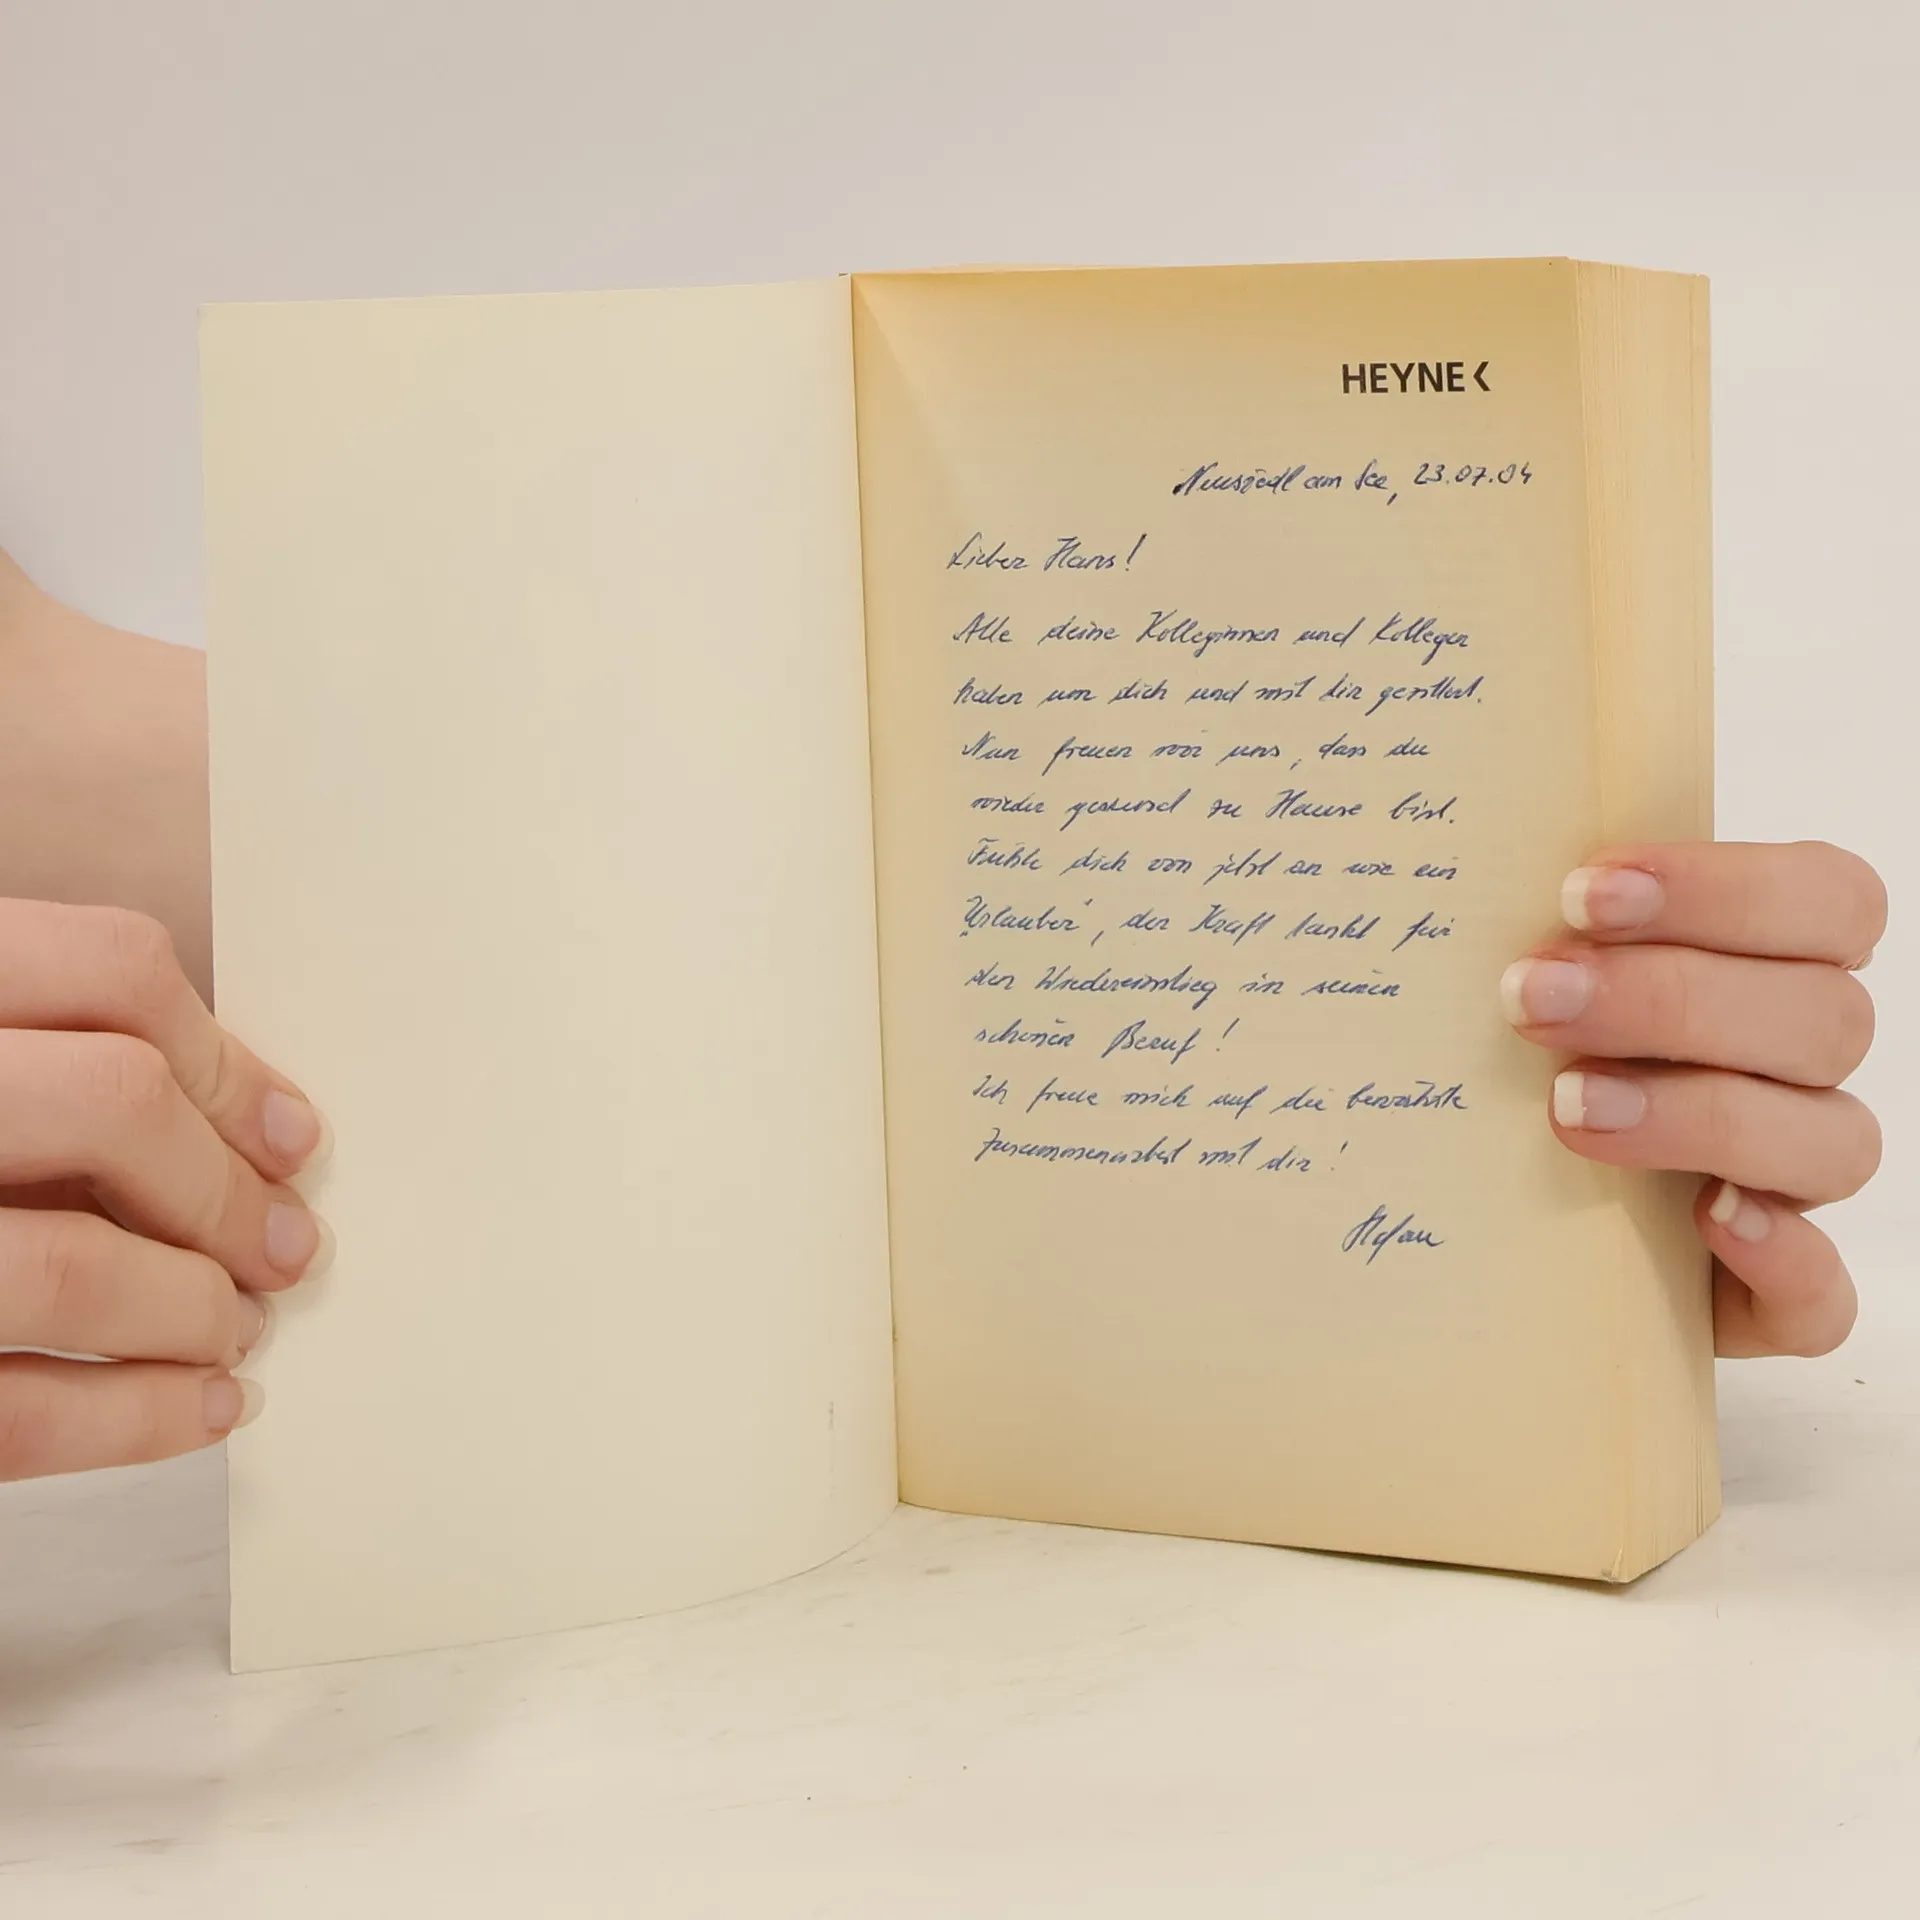 HEYNE <
Neusiedl am See, 23.07.04
Lieber Hans!
Alle deine Kolleginnen und Kollegen
haben um dich und mit dir gezittert.
Nun freuen wir uns, dass du
wieder gesund zu Hause bist.
Fühle dich von jetzt an wie ein
„Urlauber“, der Kraft tankt für
den Wiedereinstieg in seinen
schönen Beruf!
Ich freue mich auf die bewährte
Zusammenarbeit mit dir!
Stefan